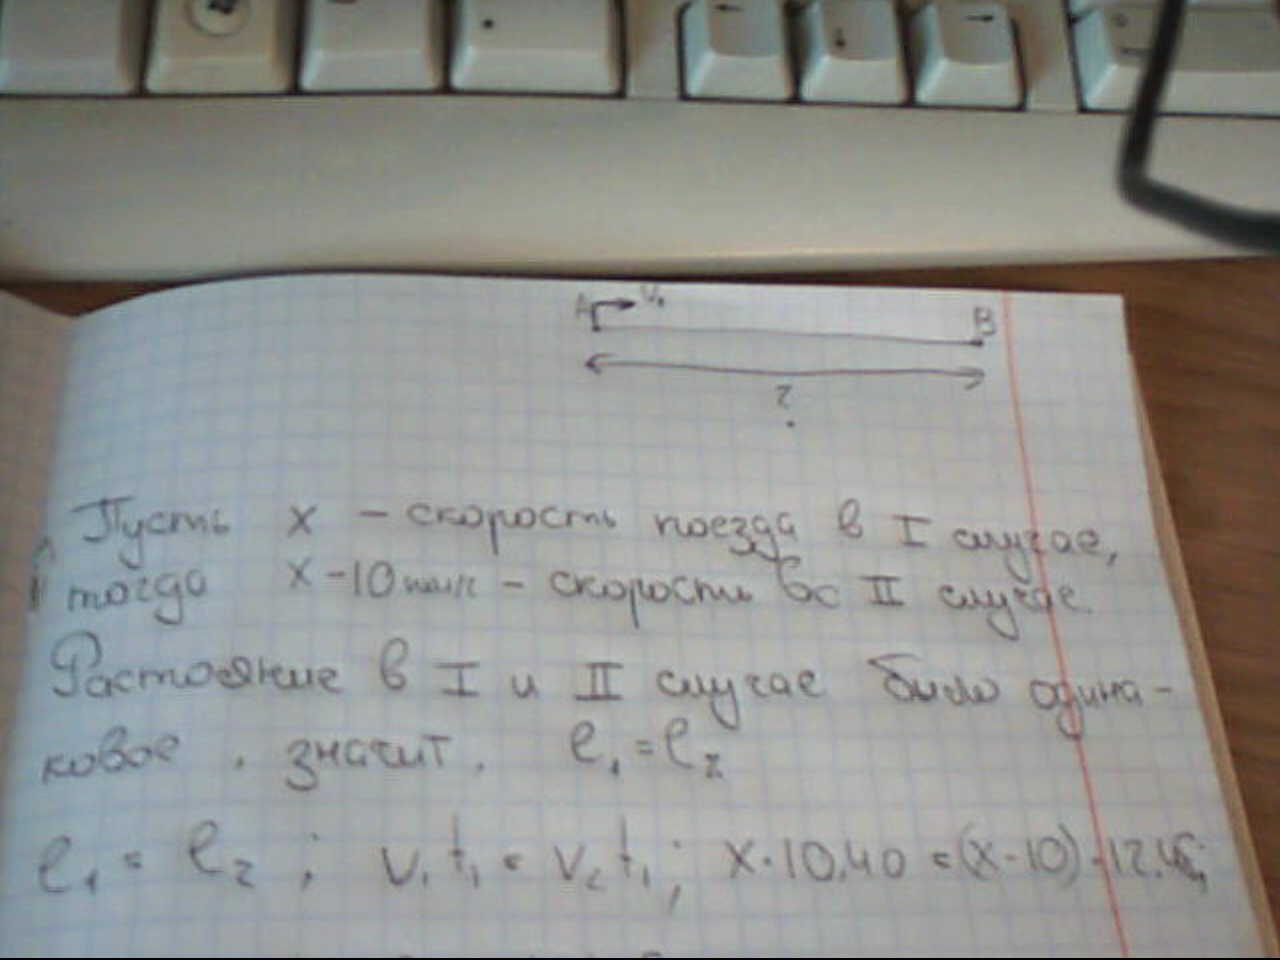 A V₁ B
?
Пусть x - скорость поезда в I случае,
тогда x-10 км/ч - скорость во II случае.
Растояние в I и II случае было одина-
ковое, значит, l₁=l₂
l₁ = l₂ ; V₁t₁ = V₂t₁; x·10.40 = (x-10)·12.